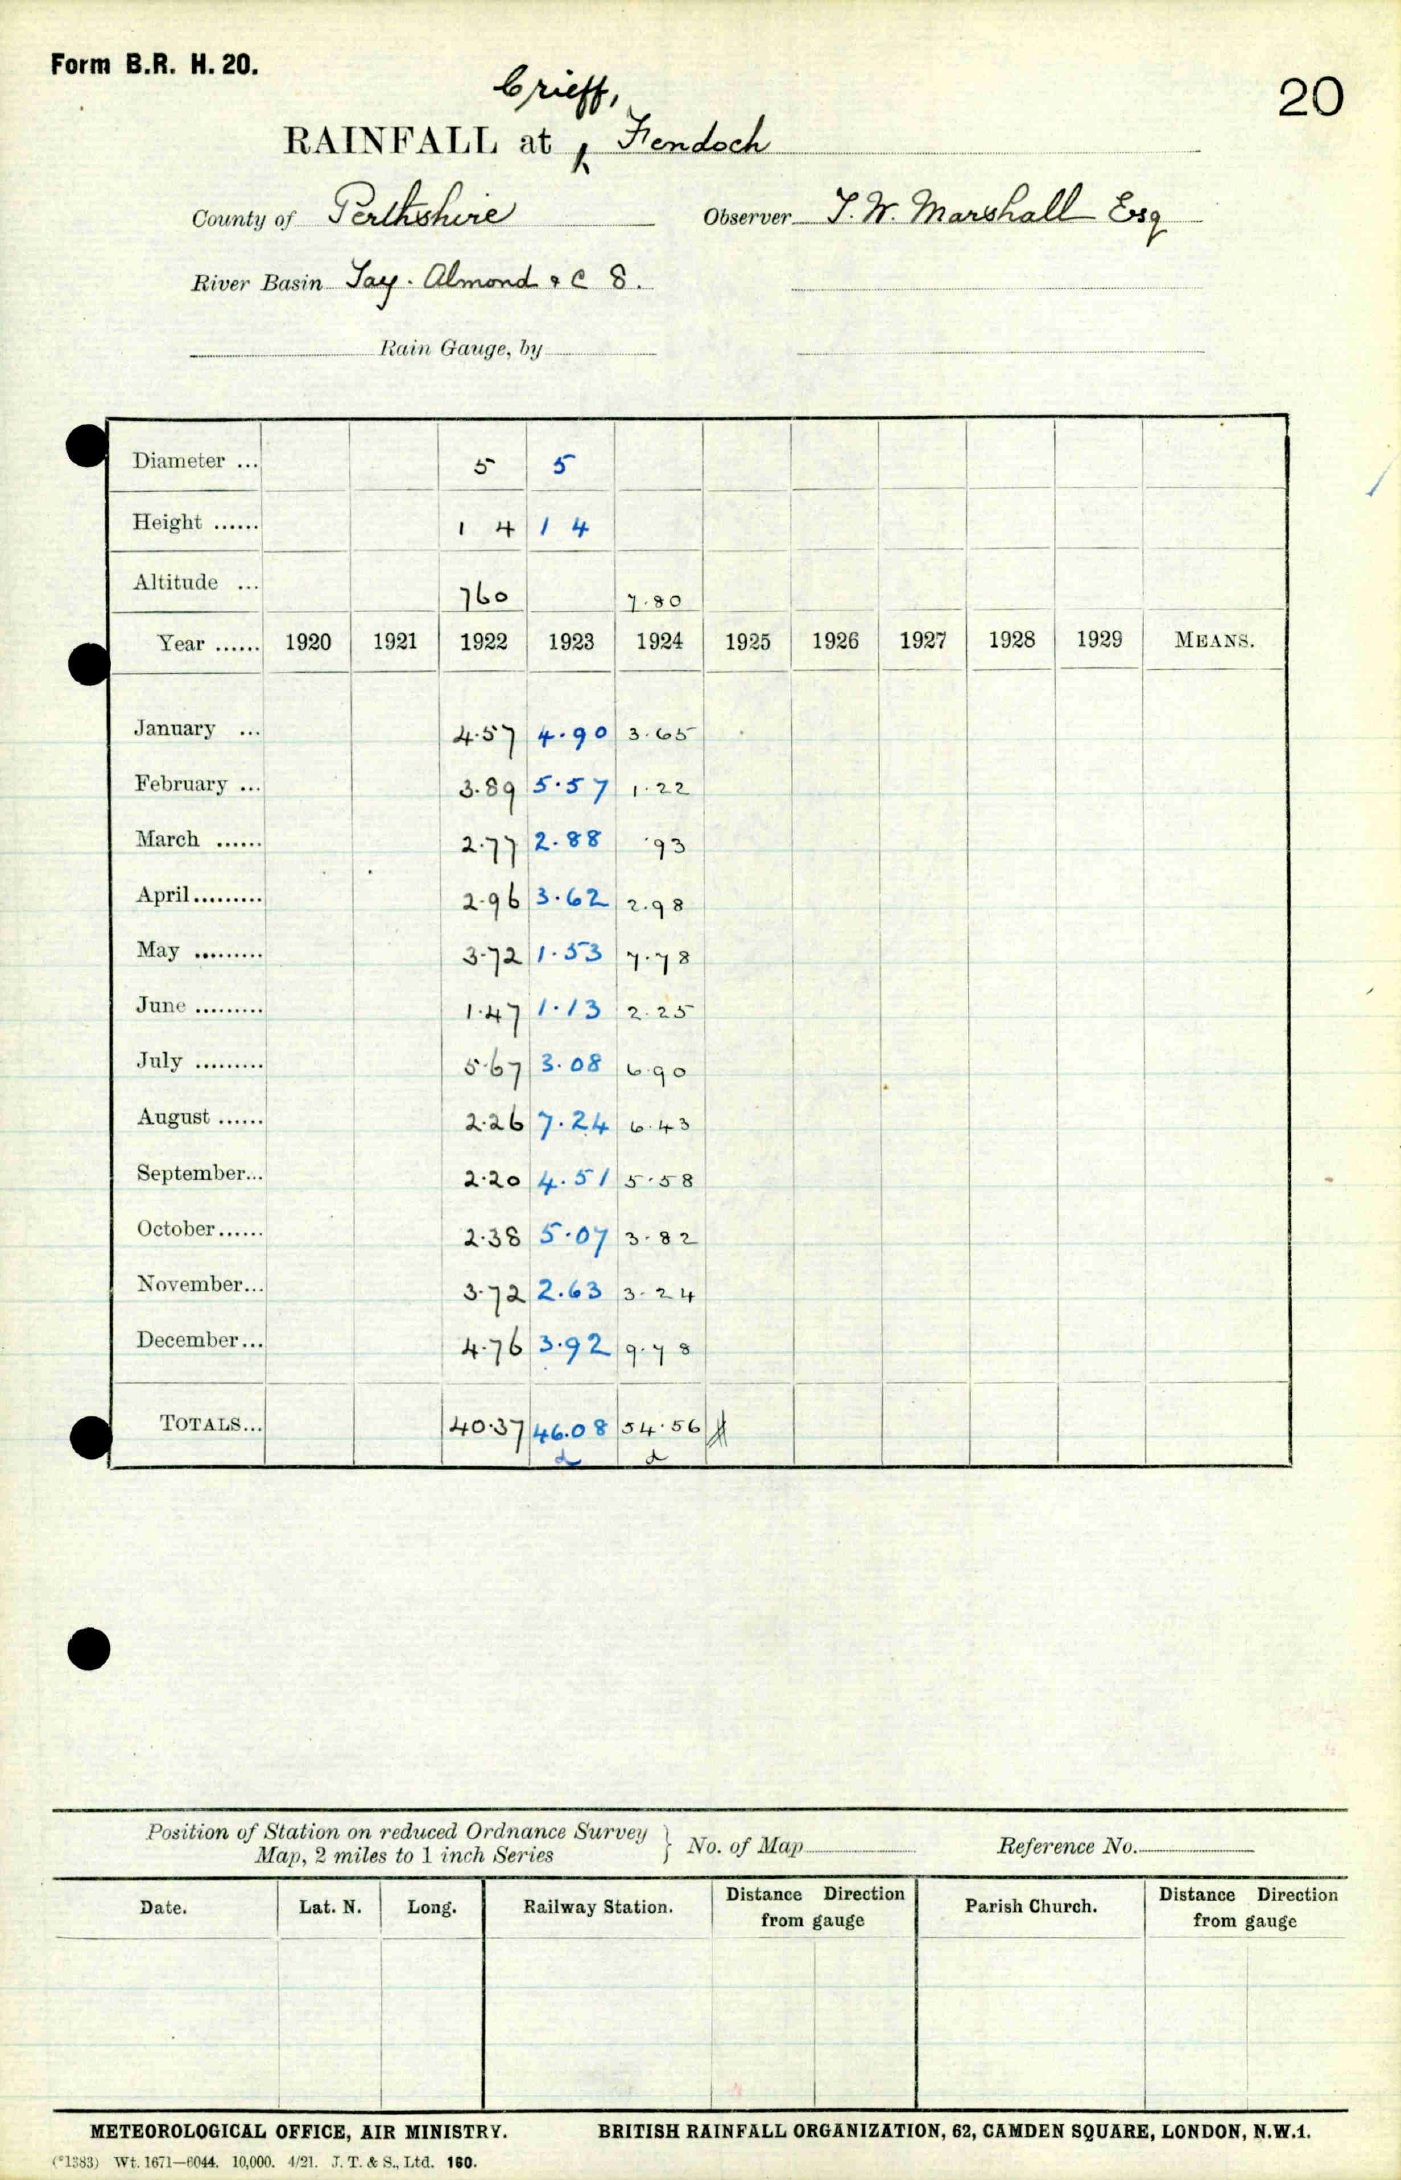 Form B.R. H. 20.
20
Crieff,
RAINFALL at Fendoch
County of Perthshire Observer T. W. Marshall Esq
River Basin Tay. Almond & C 8.
Rain Gauge, by
Diameter ... 5 5
Height ...... 1 4 1 4
Altitude ... 760 7.80
Year ...... 1920 1921 1922 1923 1924 1925 1926 1927 1928 1929 MEANS.
January ... 4.57 4.90 3.65
February ... 3.89 5.57 1.22
March ...... 2.77 2.88 .93
April......... 2.96 3.62 2.98
May ......... 3.72 1.53 7.78
June ......... 1.47 1.13 2.25
July ......... 5.67 3.08 6.90
August ...... 2.26 7.24 6.43
September... 2.20 4.51 5.58
October...... 2.38 5.07 3.82
November... 3.72 2.63 3.24
December... 4.76 3.92 9.78
TOTALS... 40.37 46.08 54.56
Position of Station on reduced Ordnance Survey
Map, 2 miles to 1 inch Series } No. of Map Reference No.
Date. Lat. N. Long. Railway Station. Distance Direction from gauge Parish Church. Distance Direction from gauge
METEOROLOGICAL OFFICE, AIR MINISTRY. BRITISH RAINFALL ORGANIZATION, 62, CAMDEN SQUARE, LONDON, N.W.1.
(*1383) Wt. 1671—6044. 10,000. 4/21. J. T. & S., Ltd. 160.